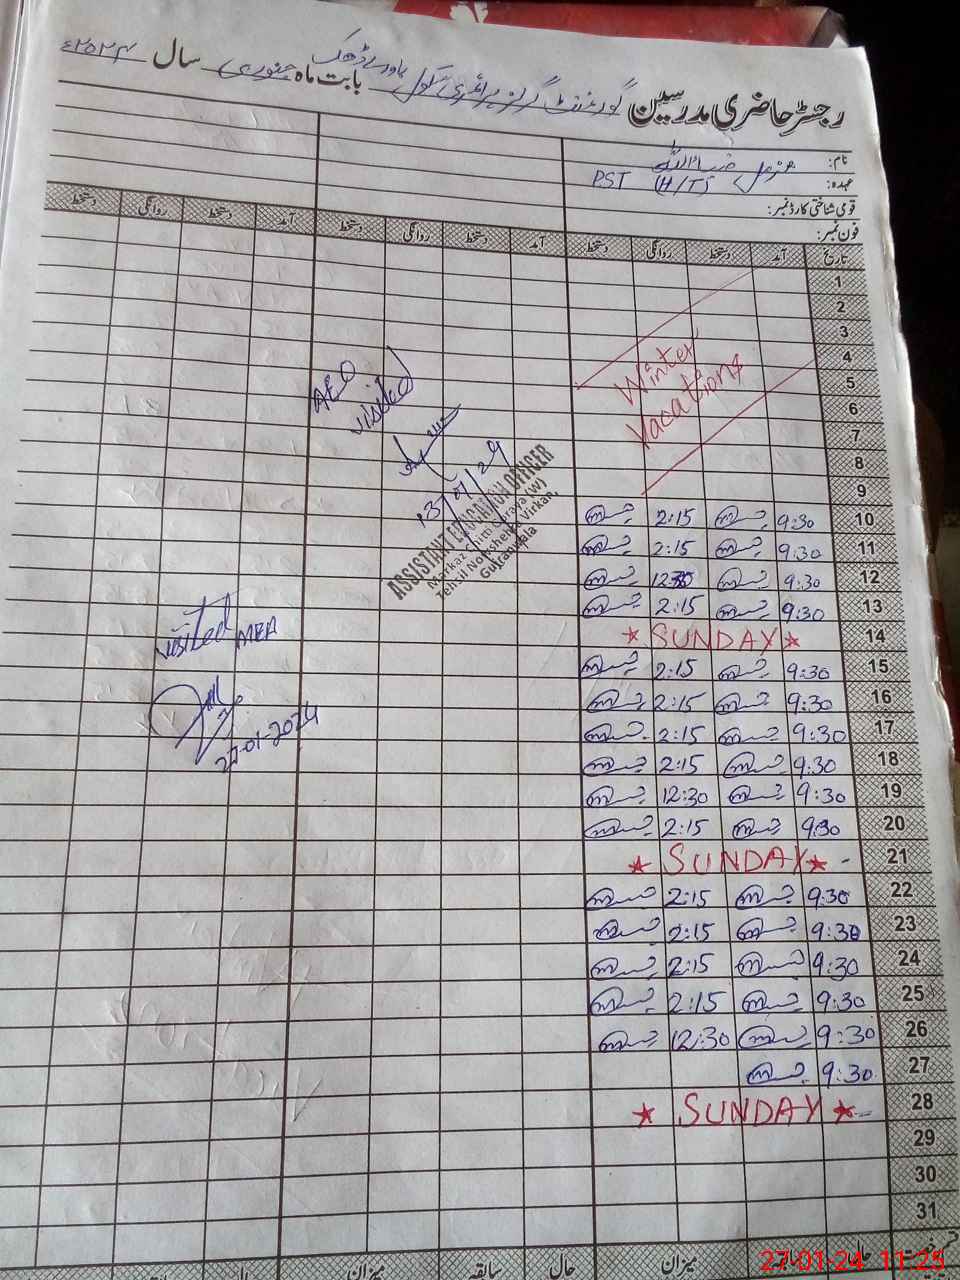 رجسٹر حاضری مدرسین گورنمنٹ گرلز پرائمری سکول بابت ماہ جنوری سال ۲۰۲۴ء
نام:
عہدہ: PST (H/T)
قومی شناختی کارڈ نمبر:
فون نمبر:
تاریخ آمد دستخط روانگی دستخط آمد دستخط روانگی دستخط آمد دستخط روانگی دستخط
1
2
3
4
5
6
7
8
9
Winter
Vacations
10 9:30 2:15
11 9:30 2:15
12 9:30 12:30
13 9:30 2:15
14 ★ SUNDAY ★
15 9:30 2:15
16 9:30 2:15
17 9:30 2:15
18 9:30 2:15
19 9:30 12:30
20 9:30 2:15
21 ★ SUNDAY ★
22 9:30 2:15
23 9:30 2:15
24 9:30 2:15
25 9:30 2:15
26 9:30 12:30
27 9:30
28 ★ SUNDAY ★
29
30
31
AEO
visited
13/01/24
ASSISTANT EDUCATION OFFICER
Tehsil Nowshera Virkan,
Gujranwala
visited MEA
27-01-2024
حال میزان حال سابقہ میزان
27-01-24 11:25